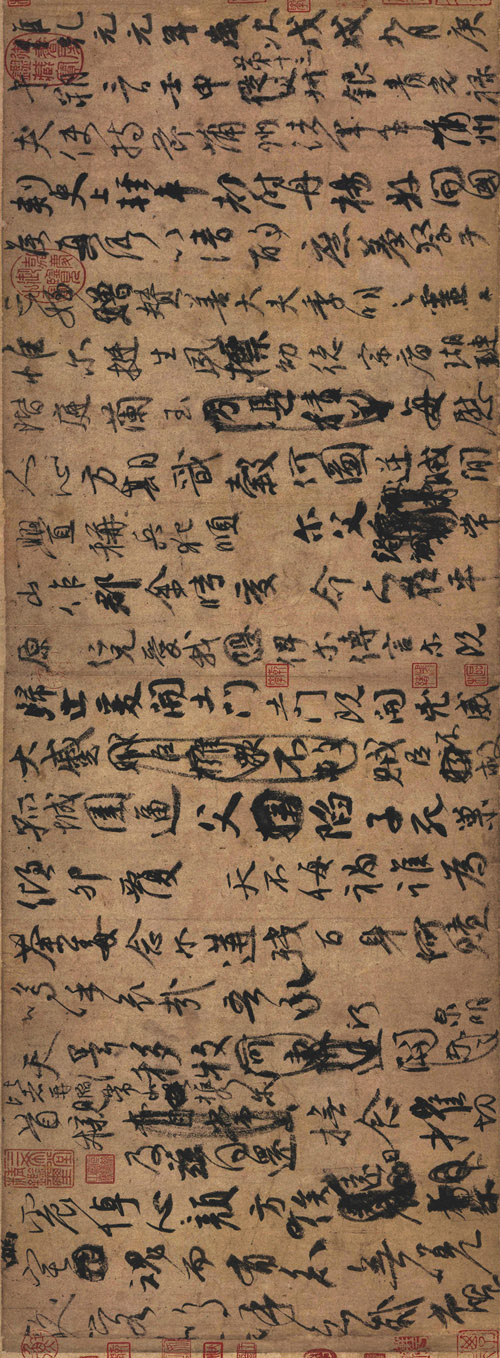 維乾元元年歲次戊戌九月庚
午朔三日壬申第十三叔銀青光祿
夫使持節蒲州諸軍事蒲州
刺史上輕車都尉丹楊縣開國
侯真卿以清酌庶羞祭于
亡姪贈贊善大夫季明之靈曰
惟爾挺生夙標幼德宗廟瑚璉
階庭蘭玉每慰
人心方期戩穀何圖逆賊閒
釁稱兵犯順爾父竭誠常
山作郡余時受命亦在平
原仁兄愛我俾爾傳言爾既
歸止爰開土門土門既開凶威
大蹙賊臣擁衆不救賊臣不救
孤城圍逼父陷子死巢
傾卵覆天不悔禍誰為
荼毒念爾遘殘百身何贖
嗚乎哀哉吾承
天澤移牧河關泉明
比者再陷常山攜爾
首櫬及茲同還撫念摧切
震悼心顏方俟遠日
爾幽宅魂而有知無嗟
久客嗚呼哀哉尚饗